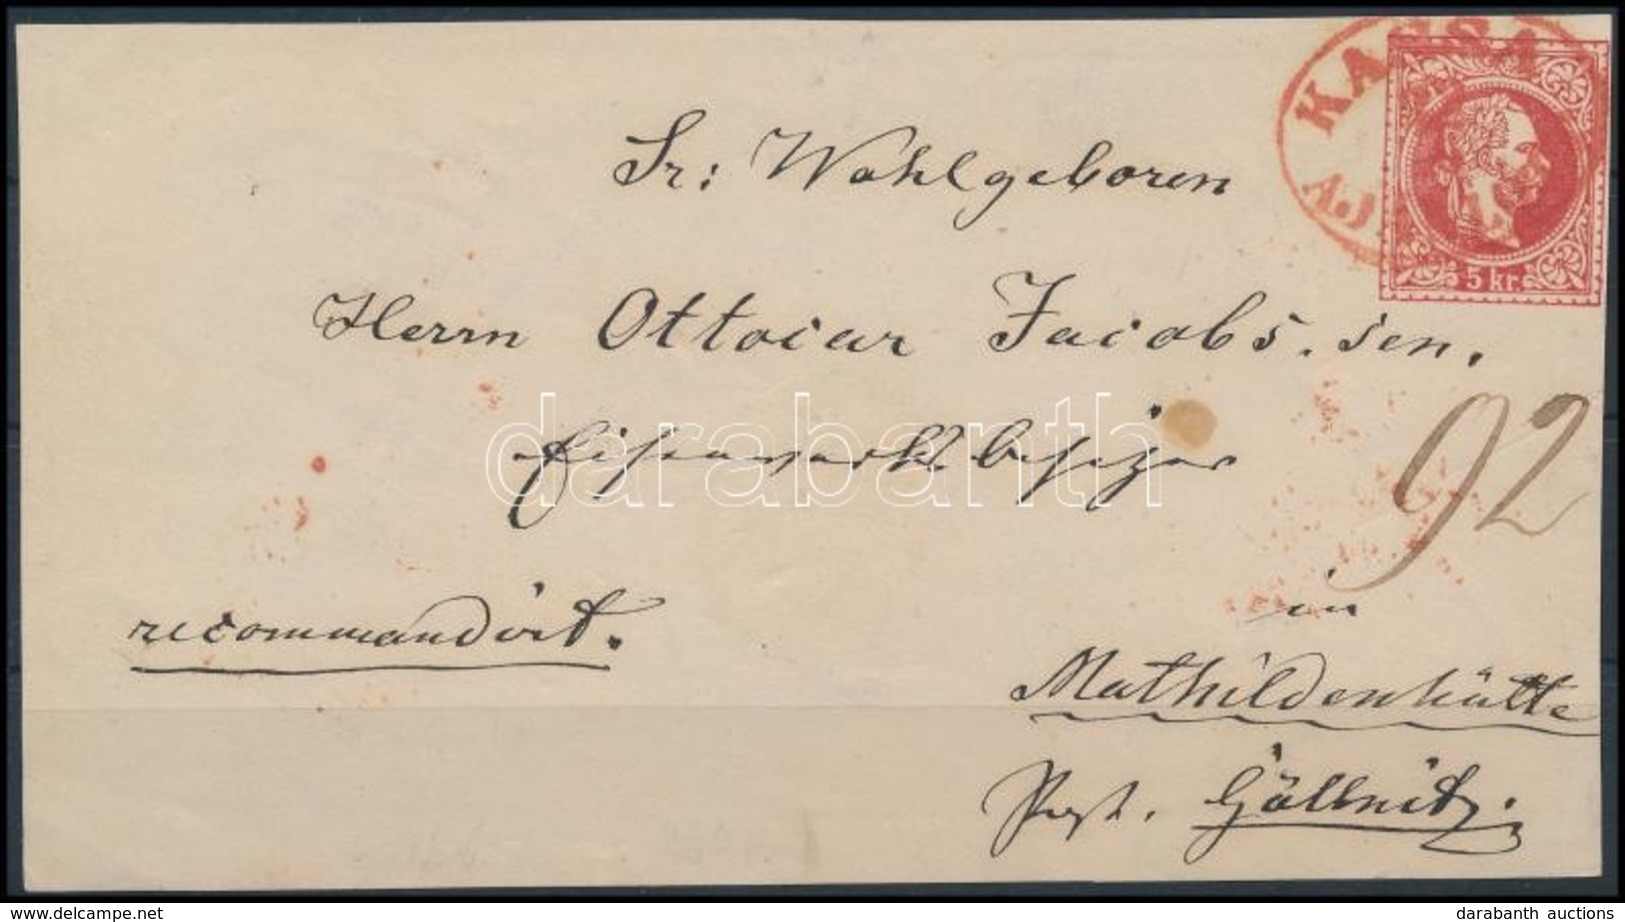 KASSA
AJ
5 kr.
Sr: Wohlgeboren
Herrn Ottocar Jacobs. sen.
Eisenwerksbesizer
92
recommandirt.
in
Mathildenhütte
Post. Göllnitz.
darabanth
darabanth auctions
www.delcampe.net